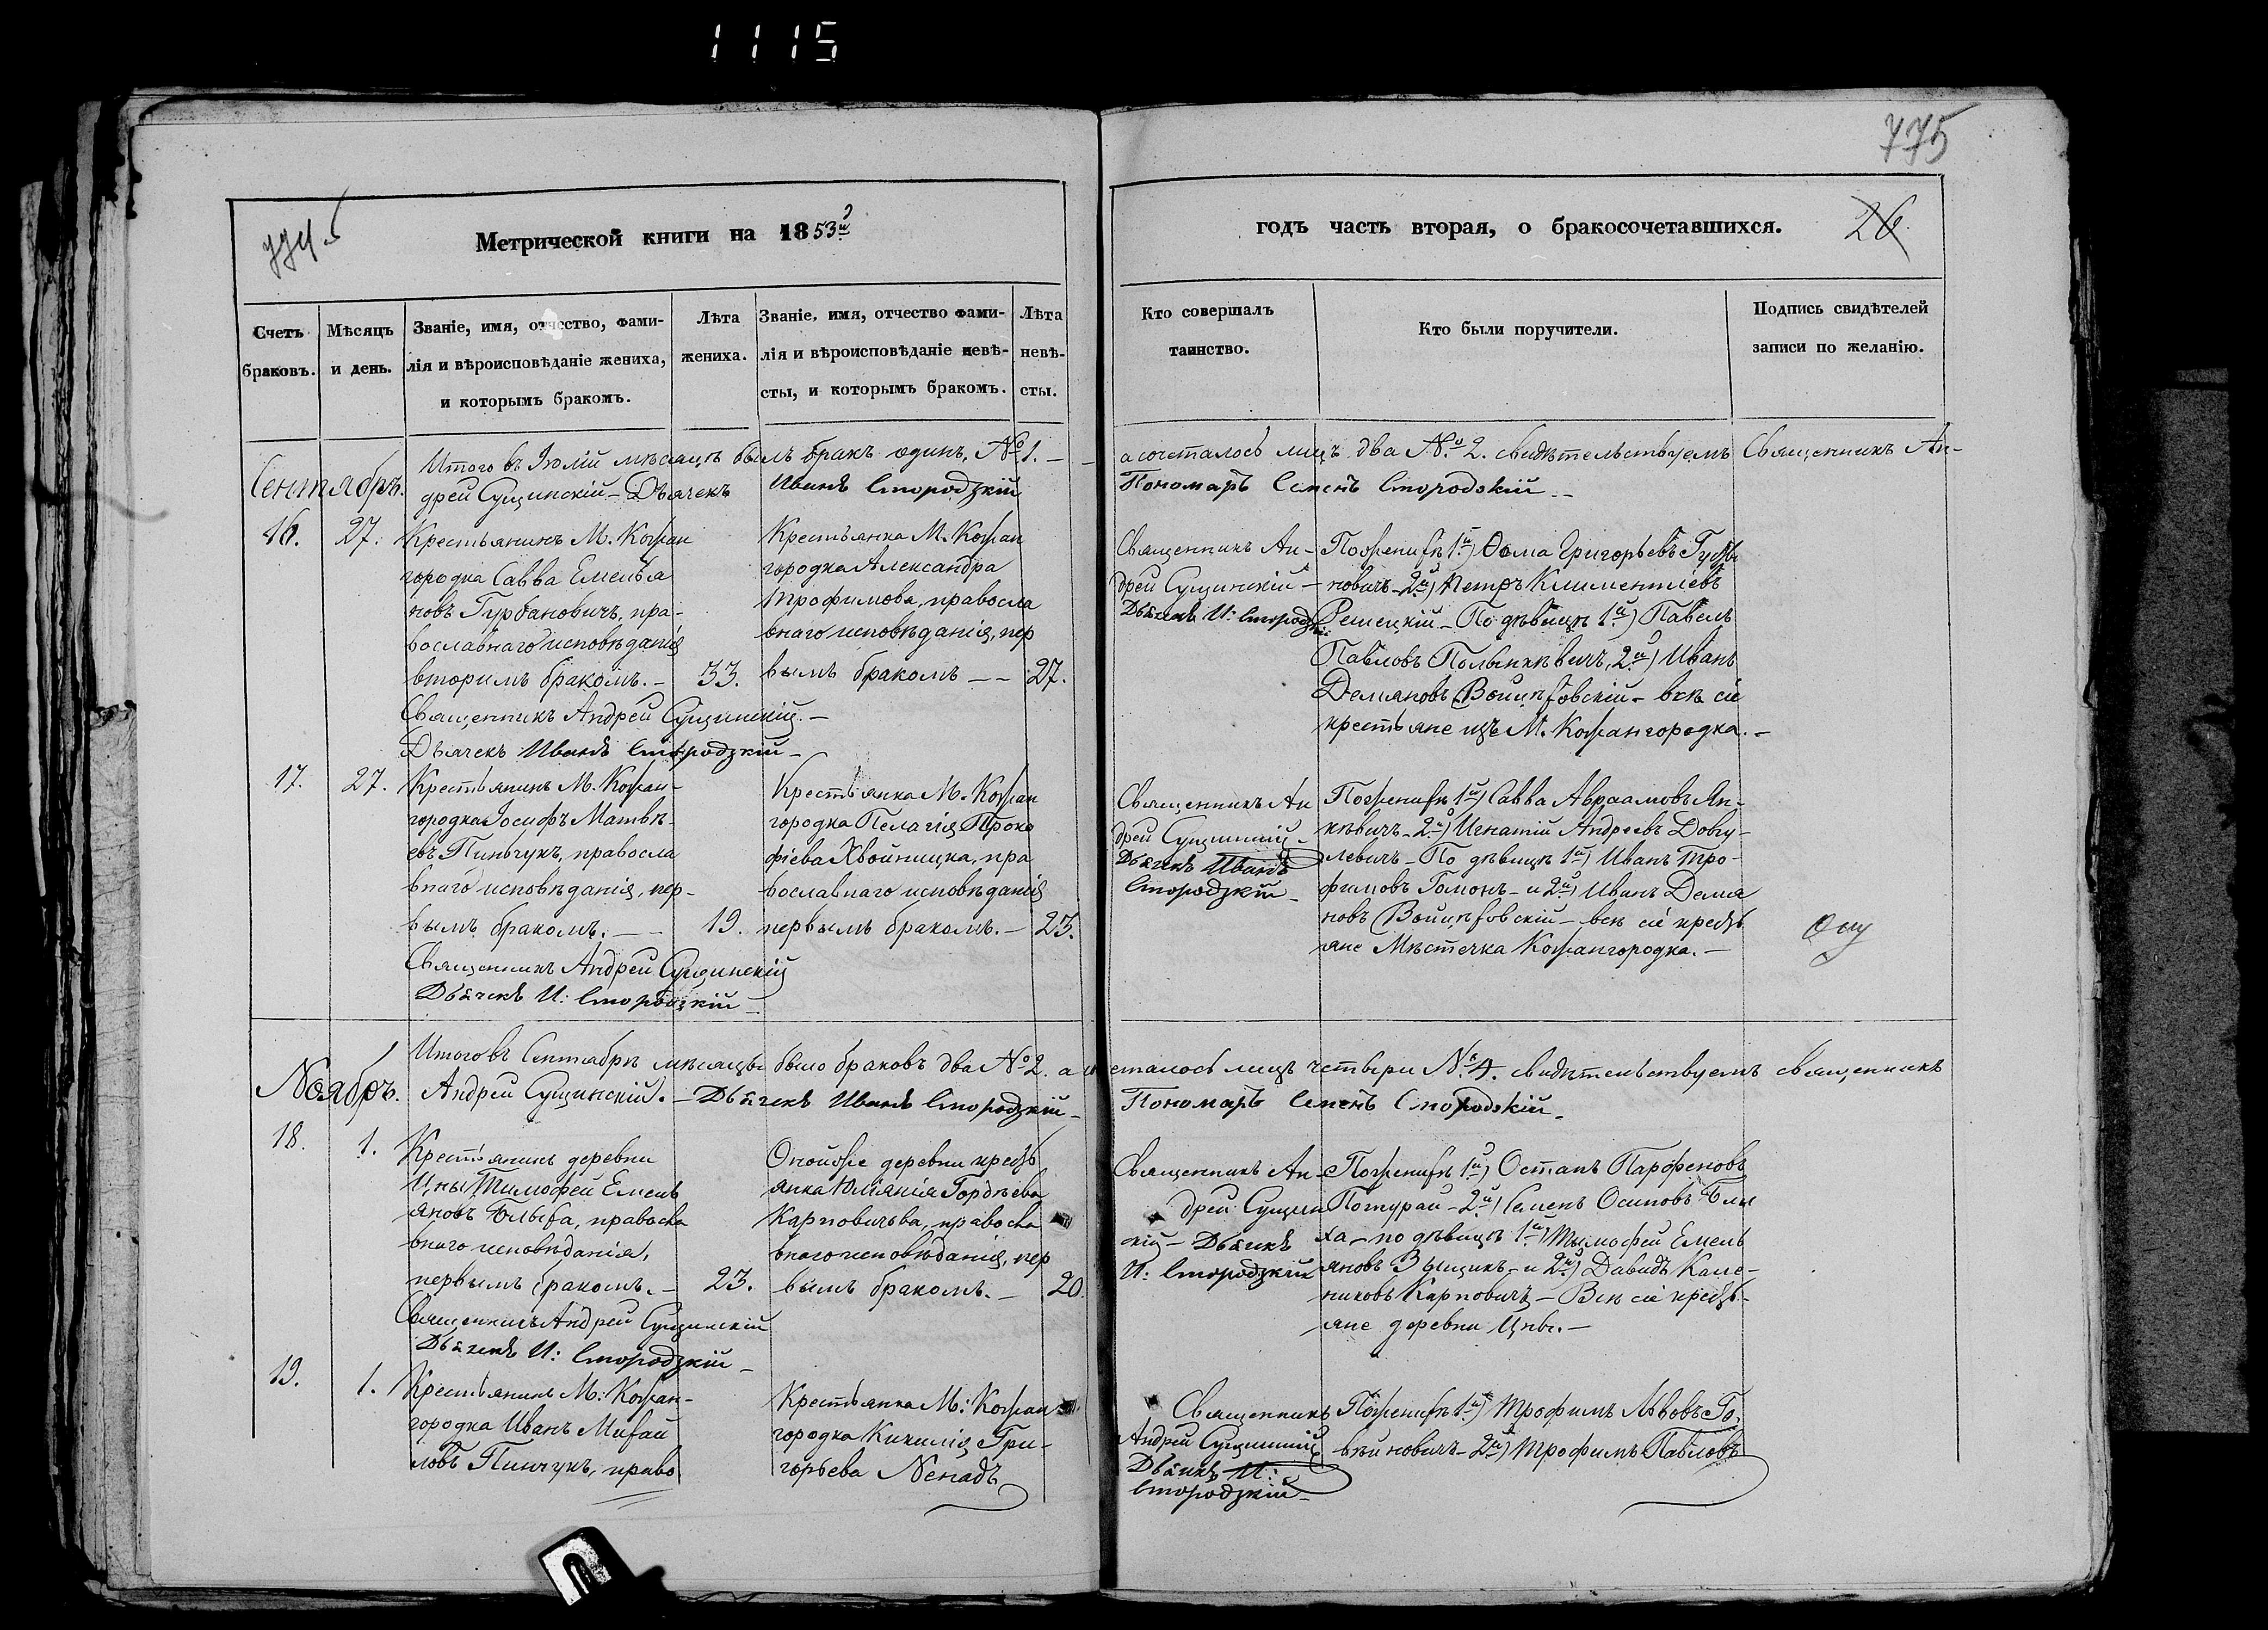 1115
775
774
Метрической книги на 1853й
годъ часть вторая, о бракосочетавшихся.
26.
Счетъ
браковъ.
Мѣсяцъ
и день.
Званіе, имя, отчество, фами-
лія и вѣроисповѣданіе жениха,
и которымъ бракомъ.
Лѣта
жениха.
Званіе, имя, отчество фами-
лія и вѣроисповѣданіе невѣ-
сты, и которымъ бракомъ.
Лѣта
невѣ-
сты.
Кто совершалъ
таинство.
Кто были поручители.
Подпись свидѣтелей
записи по желанію.
Итого въ Іюлій мѣсяцѣ былъ бракъ одинъ, № 1. — а сочеталось лицъ два № 2. свидѣтельствуемъ Священникъ Ан-
Сентябрь.
дрей Сущинскій — Дьячекъ Иванъ Смородзкій Пономарь Семенъ Смородскій —
16. 27.
Крестьянинъ М. Кожан
городка Савва Емелья
новъ Гурбановичъ, пра-
вославнаго исповѣданія
вторимъ бракомъ. — 33.
Священникъ Андрей Сущинскій. —
Дьячекъ Иванъ Сморродзкій —
Крестьянка М. Кожан
городка Александра
Трофимова, правосла
внаго исповѣданія, пер
вымъ бракомъ — — 27.
Священникъ Ан-
дрей Сущинскій —
Дьячекъ И: Смородзкій
По женихѣ 1й) Ѳома Григорьевъ
новичъ — 2й) Петръ Климентіевъ
Решецкій — По дѣвицѣ 1й) Павелъ
Павловъ Полынкѣвичъ, 2й) Иванъ
Демяновъ Войцѣховскій — всѣ сіе
крестьяне изъ М. Кожангородка. —
17. 27.
Крестьянинъ М. Кожан-
городка Іосифъ Матвѣ-
евъ Пинчукъ, правосла
внаго исповѣданія, пер-
вымъ бракомъ. — — 19.
Священникъ Андрей Сущинскій
Дьячекъ И: Смородзкій —
Крестьянка М. Кожан
городка Пелагія Проко
фіева Хвойницка, пра
вославнаго исповѣданія
первымъ бракомъ. — 23.
Священникъ Ан
дрей Сущинскій —
Дьячекъ Иванъ
Смородзкій —
По женихѣ 1й) Савва Авраамовъ Ян-
кѣвичъ — 2й) Игнатій Андреевъ Довгу-
левичъ — По дѣвицѣ 1й) Иванъ Тро-
фимовъ Гомонъ — и 2й) Иванъ Демя
новъ Войцѣховскій — всѣ сіе кресть
яне Мѣстечка Кожангородка. —
Итого въ Сентябрѣ мѣсяцѣ было браковъ два № 2. а сочеталось лицъ четыри № 4. свидѣтельствуемъ священникъ
Ноябрь.
Андрей Сущинскій. — Дьячекъ Иванъ Смородзкій — Пономарь Семенъ Смородскій —
18. 1.
Крестьянинъ деревни
Цны Тимофей Емель
яновъ, правосла
внаго исповѣданія,
первымъ бракомъ. — 23.
Священникъ Андрей Сущинскій
Дьячекъ И: Смородзкій —
Оной же деревни кресть
янка Юліянія Гордѣева
Карповичова, правосла
внаго исповѣданія, пер
вымъ бракомъ. — 20.
Священникъ Ан-
дрей Сущин
скій — Дьячекъ
И: Смородзкій
По женихѣ 1й) Остапъ Парфеновъ
Потурай — 2й) Семенъ Осиповъ Бли
ха — по дѣвицѣ 1й) Тимофей Емель
яновъ Зыщикъ — и 2й) Давидъ Кале-
никовъ Карповичъ — Всѣ сіе кресть-
яне деревни Цны. —
19. 1.
Крестьянинъ М: Кожан-
городка Иванъ Михай
ловъ Пинчукъ, право
Крестьянка М: Кожан
городка Кикилія Гри-
горьева Ненадъ
Священникъ
Андрей Сущинскій
Дьячекъ И:
Смородзкій —
По женихѣ 1й) Трофимъ Львовъ Го-
вѣйновичъ — 2й) Трофимъ Павловъ